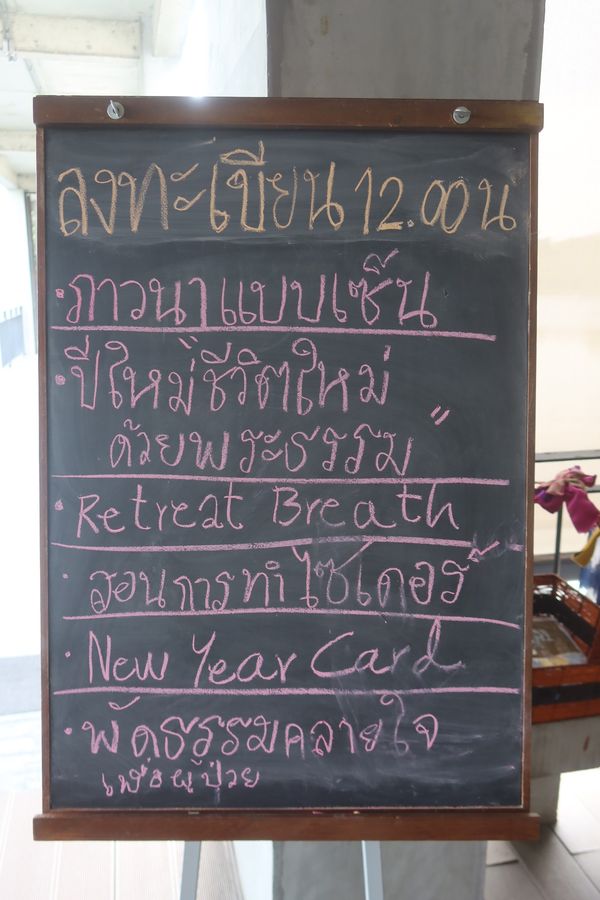 ลงทะเบียน 12.00 น
• ภาวนาแบบเซ็น
• ปีใหม่ "ชีวิตใหม่
ด้วยพระธรรม"
• Retreat Breath
• สอนการทำไซเดอร์
• New Year Card
• พัดธรรมคลายใจ
เพื่อผู้ป่วย